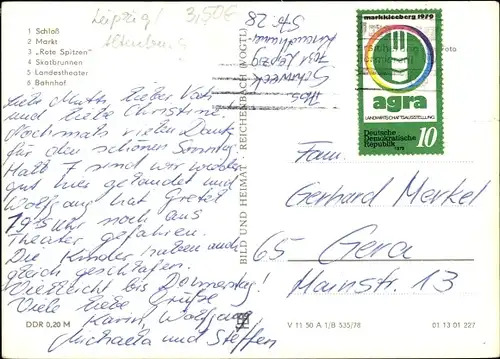 1 Schloß
2 Markt
3 „Rote Spitzen“
4 Skatbrunnen
5 Landestheater
6 Bahnhof
Leipzig/
Altenburg
3,50€
Abs.
Schmeck
7031 Leipzig
Str. 28
Liebe Mutti, lieber Vati
und liebe Christine,
Nochmals vielen Dank
für den schönen Sonntag.
Halb 7 sind wir wieder
gut hier gelandet und
Wolfgang hat Gretel
19 15 Uhr noch aus
Theater gefahren.
Die Kinder haben auch
gleich geschlafen.
Vielleicht bis Donnerstag!
Viele liebe Grüße
Karin Wolfgang
Michaela und Steffen
BILD UND HEIMAT · REICHENBACH (VOGTL)
markkleeberg 1979
agra
LANDWIRTSCHAFTSAUSSTELLUNG
Deutsche
Demokratische
Republik
10
1979
Fam.
Gerhard Merkel
65 Gera
Mainstr. 13
DDR 0,20 M
V 11 50 A 1/B 535/78
01 13 01 227